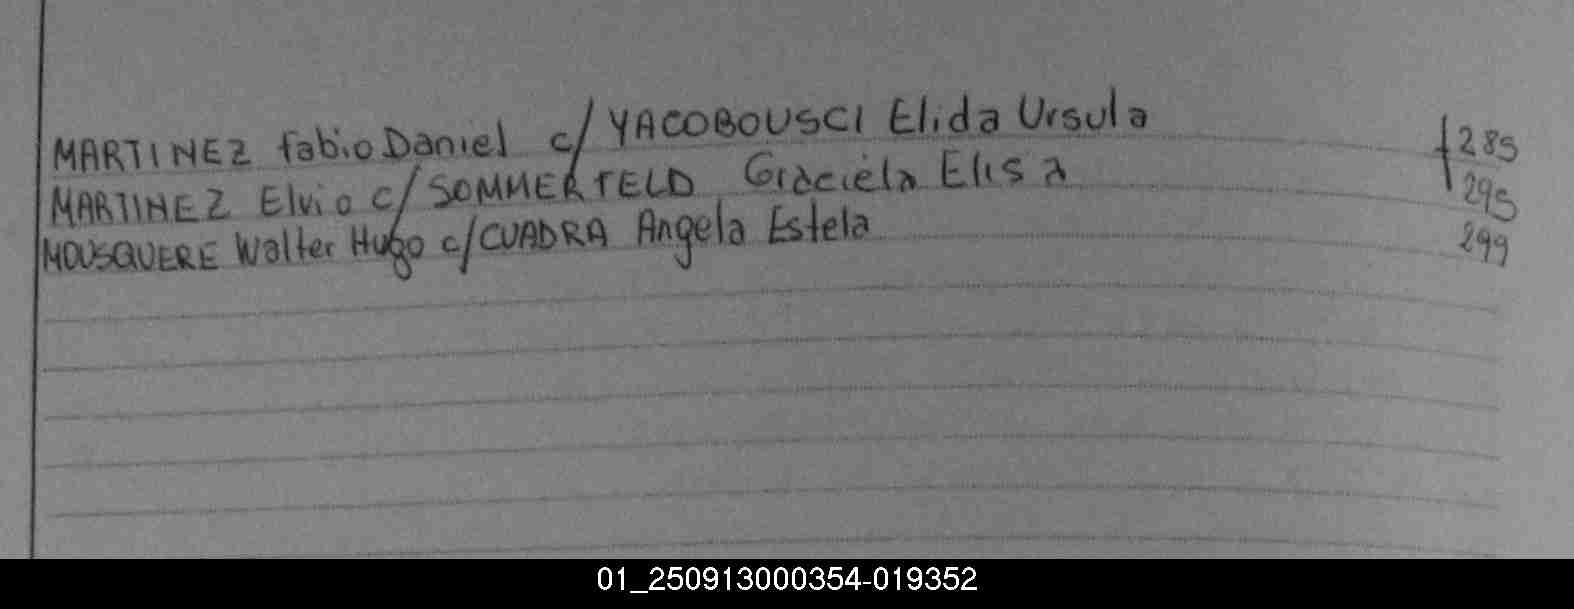 MARTINEZ Fabio Daniel c/ YACOBOUSCI Elida Ursula 285
MARTINEZ Elvio c/ SOMMERFELD Graciela Elisa 295
MOUSQUERE Walter Hugo c/ CUADRA Angela Estela 299
01_250913000354-019352